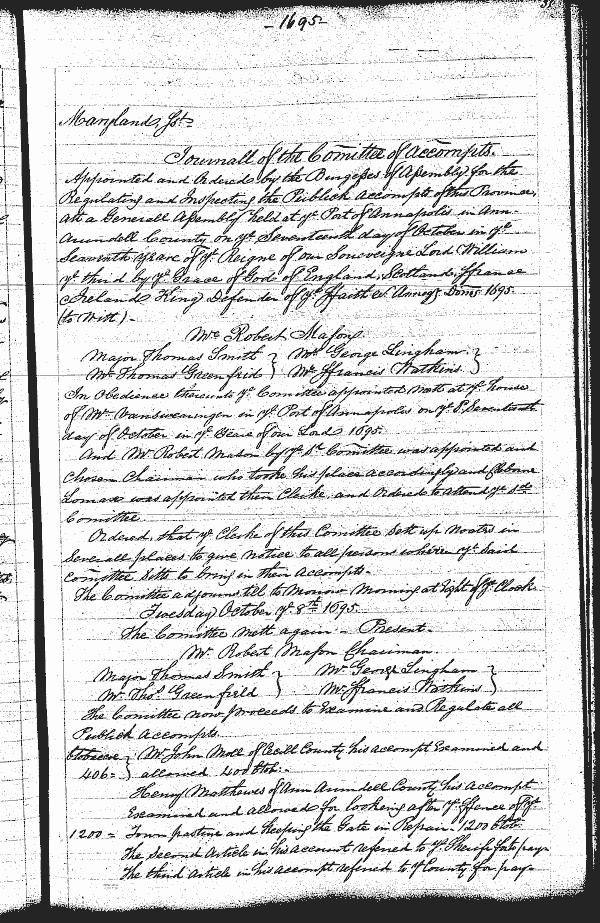 -1695-
Maryland, Sst=
Journall of the Comittee of accompts.
Appointed and Ordered by the Burgesses of Assembly for the
Regulating and Inspecting the Publick accompts of this Province,
att a Generall Assembly held at ye Port of Annapolis in Ann-
Arundell County on ye Seventeenth day of October in ye
Seaventh yeare of ye Reigne of our Soveveigne Lord William
ye third by ye Grace of God of England, Scotland, ffrance
& Ireland King Defender of ye ffaith &c Annoqr Dom: 1695.
(to Witt) -
Mr Robert Mason
Major Thomas Smith } Mr George Lingham }
Mr Thomas Greenfeild } Mr ffrancis Watkins }
In Obedience thereunto ye Comittee appointed mett at ye house
of Mr Vansweringen in ye Port of Annapolis on ye Seventeenth
day of October in ye Yeare of our Lord 1695.
And Mr Robert Mason by ye sd Comittee was appointed and
Chosen Chairman who tooke his place accordingly and Cleborne
Lomax was appointed their Clerke, and Ordered to attend ye sd
Comittee
Ordered, that ye Clerk of this Comittee sett up Noates in
Severall places to give notice to all persons where ye said
Comittee sitts to bring in their accompts.
The Comittee adjourns till to Morrow Morning at Eight of ye Cloak
Tuesday October ye 8th 1695.
The Comittee mett again - Present.
Mr Robert Mason Chairman.
Major Thomas Smith } Mr George Lingham }
Mr Thos Greenfield } Mr ffrancis Watkins }
The Comittee now proceeds to Examine and Regulate all
Publick accompts
tobaccoe } Mr John Moll of Cecill County his accompt Examined and
406= } allowed 400 tob: -
Henry Matthewes of Ann Arundell County his accompt
Examined and allowed for looking after ye ffence of ye
1200 = Town pasture and keeping the Gate in Repair. 1200 tob:
The second Article in his account referred to ye Sherife for to pay-
The third article in his accompt referred to ye County for pay-